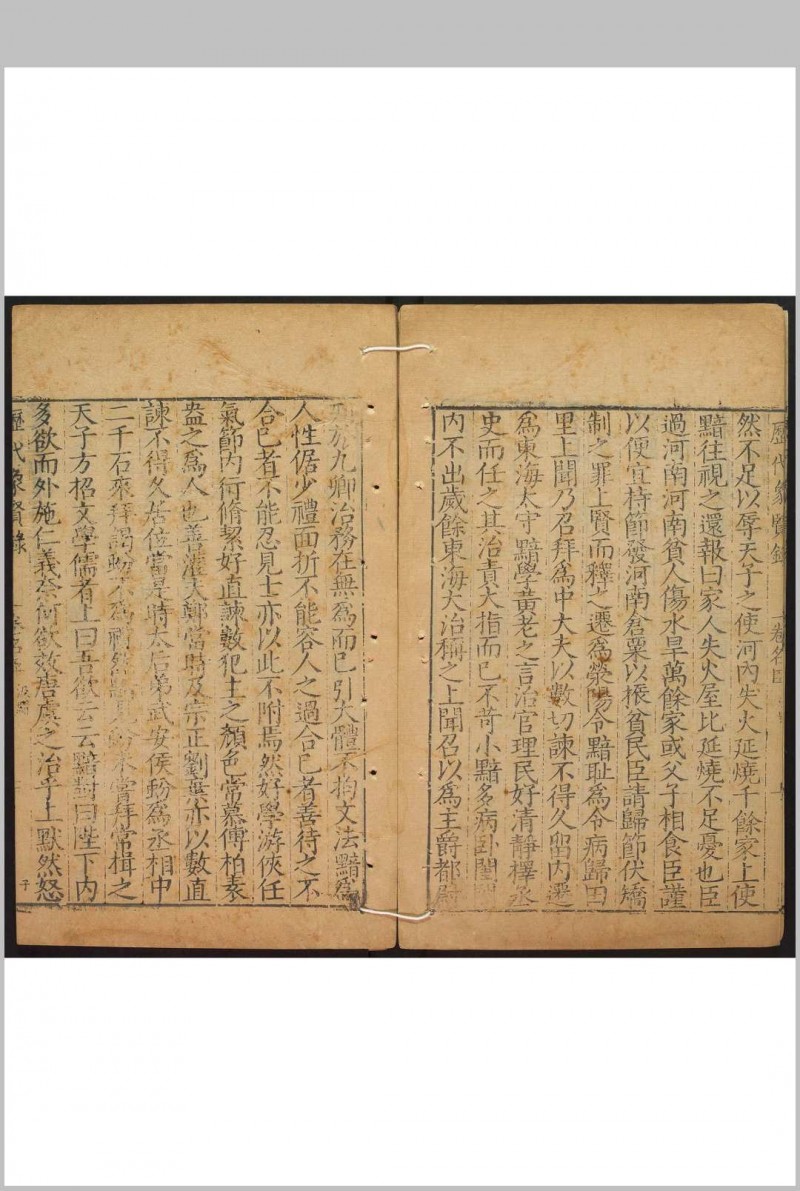 歷代象賢錄 卷名臣
然不足以辱天子之使河內失火延燒千餘家上使
黯往視之還報曰家人失火屋比延燒不足憂也臣
過河南河南貧人傷水旱萬餘家或父子相食臣謹
以便宜持節發河南倉粟以振貧民臣請歸節伏矯
制之罪上賢而釋之遷爲滎陽令黯恥爲令病歸田
里上聞乃召拜爲中大夫以數切諫不得久留內遷
爲東海太守黯學黃老之言治官理民好清靜擇丞
史而任之其治責大指而已不苛小黯多病臥閨
內不出歲餘東海大治稱之上聞召以爲主爵都尉
列於九卿治務在無爲而已引大體不拘文法黯爲
人性倨少禮面折不能容人之過合己者善待之不
合己者不能忍見士亦以此不附焉然好學游俠任
氣節內行脩絜好直諫數犯主之顏色常慕傅柏袁
盎之爲人也善灌夫鄭當時及宗正劉棄亦以數直
諫不得久居位當是時太后弟武安侯蚡爲丞相中
二千石來拜謁蚡不爲禮然黯見蚡未嘗拜常揖之
天子方招文學儒者上曰吾欲云云黯對曰陛下內
多欲而外施仁義奈何欲效唐虞之治乎上默然怒
歷代象賢錄